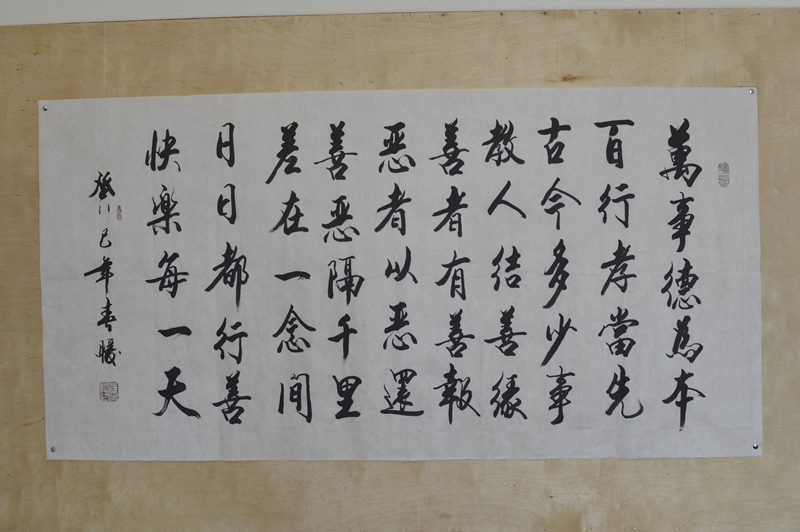 萬事德為本
百行孝當先
古今多少事
教人結善緣
善者有善報
惡者以惡還
善惡隔千里
差在一念间
日日都行善
快樂每一天
巳年春暖